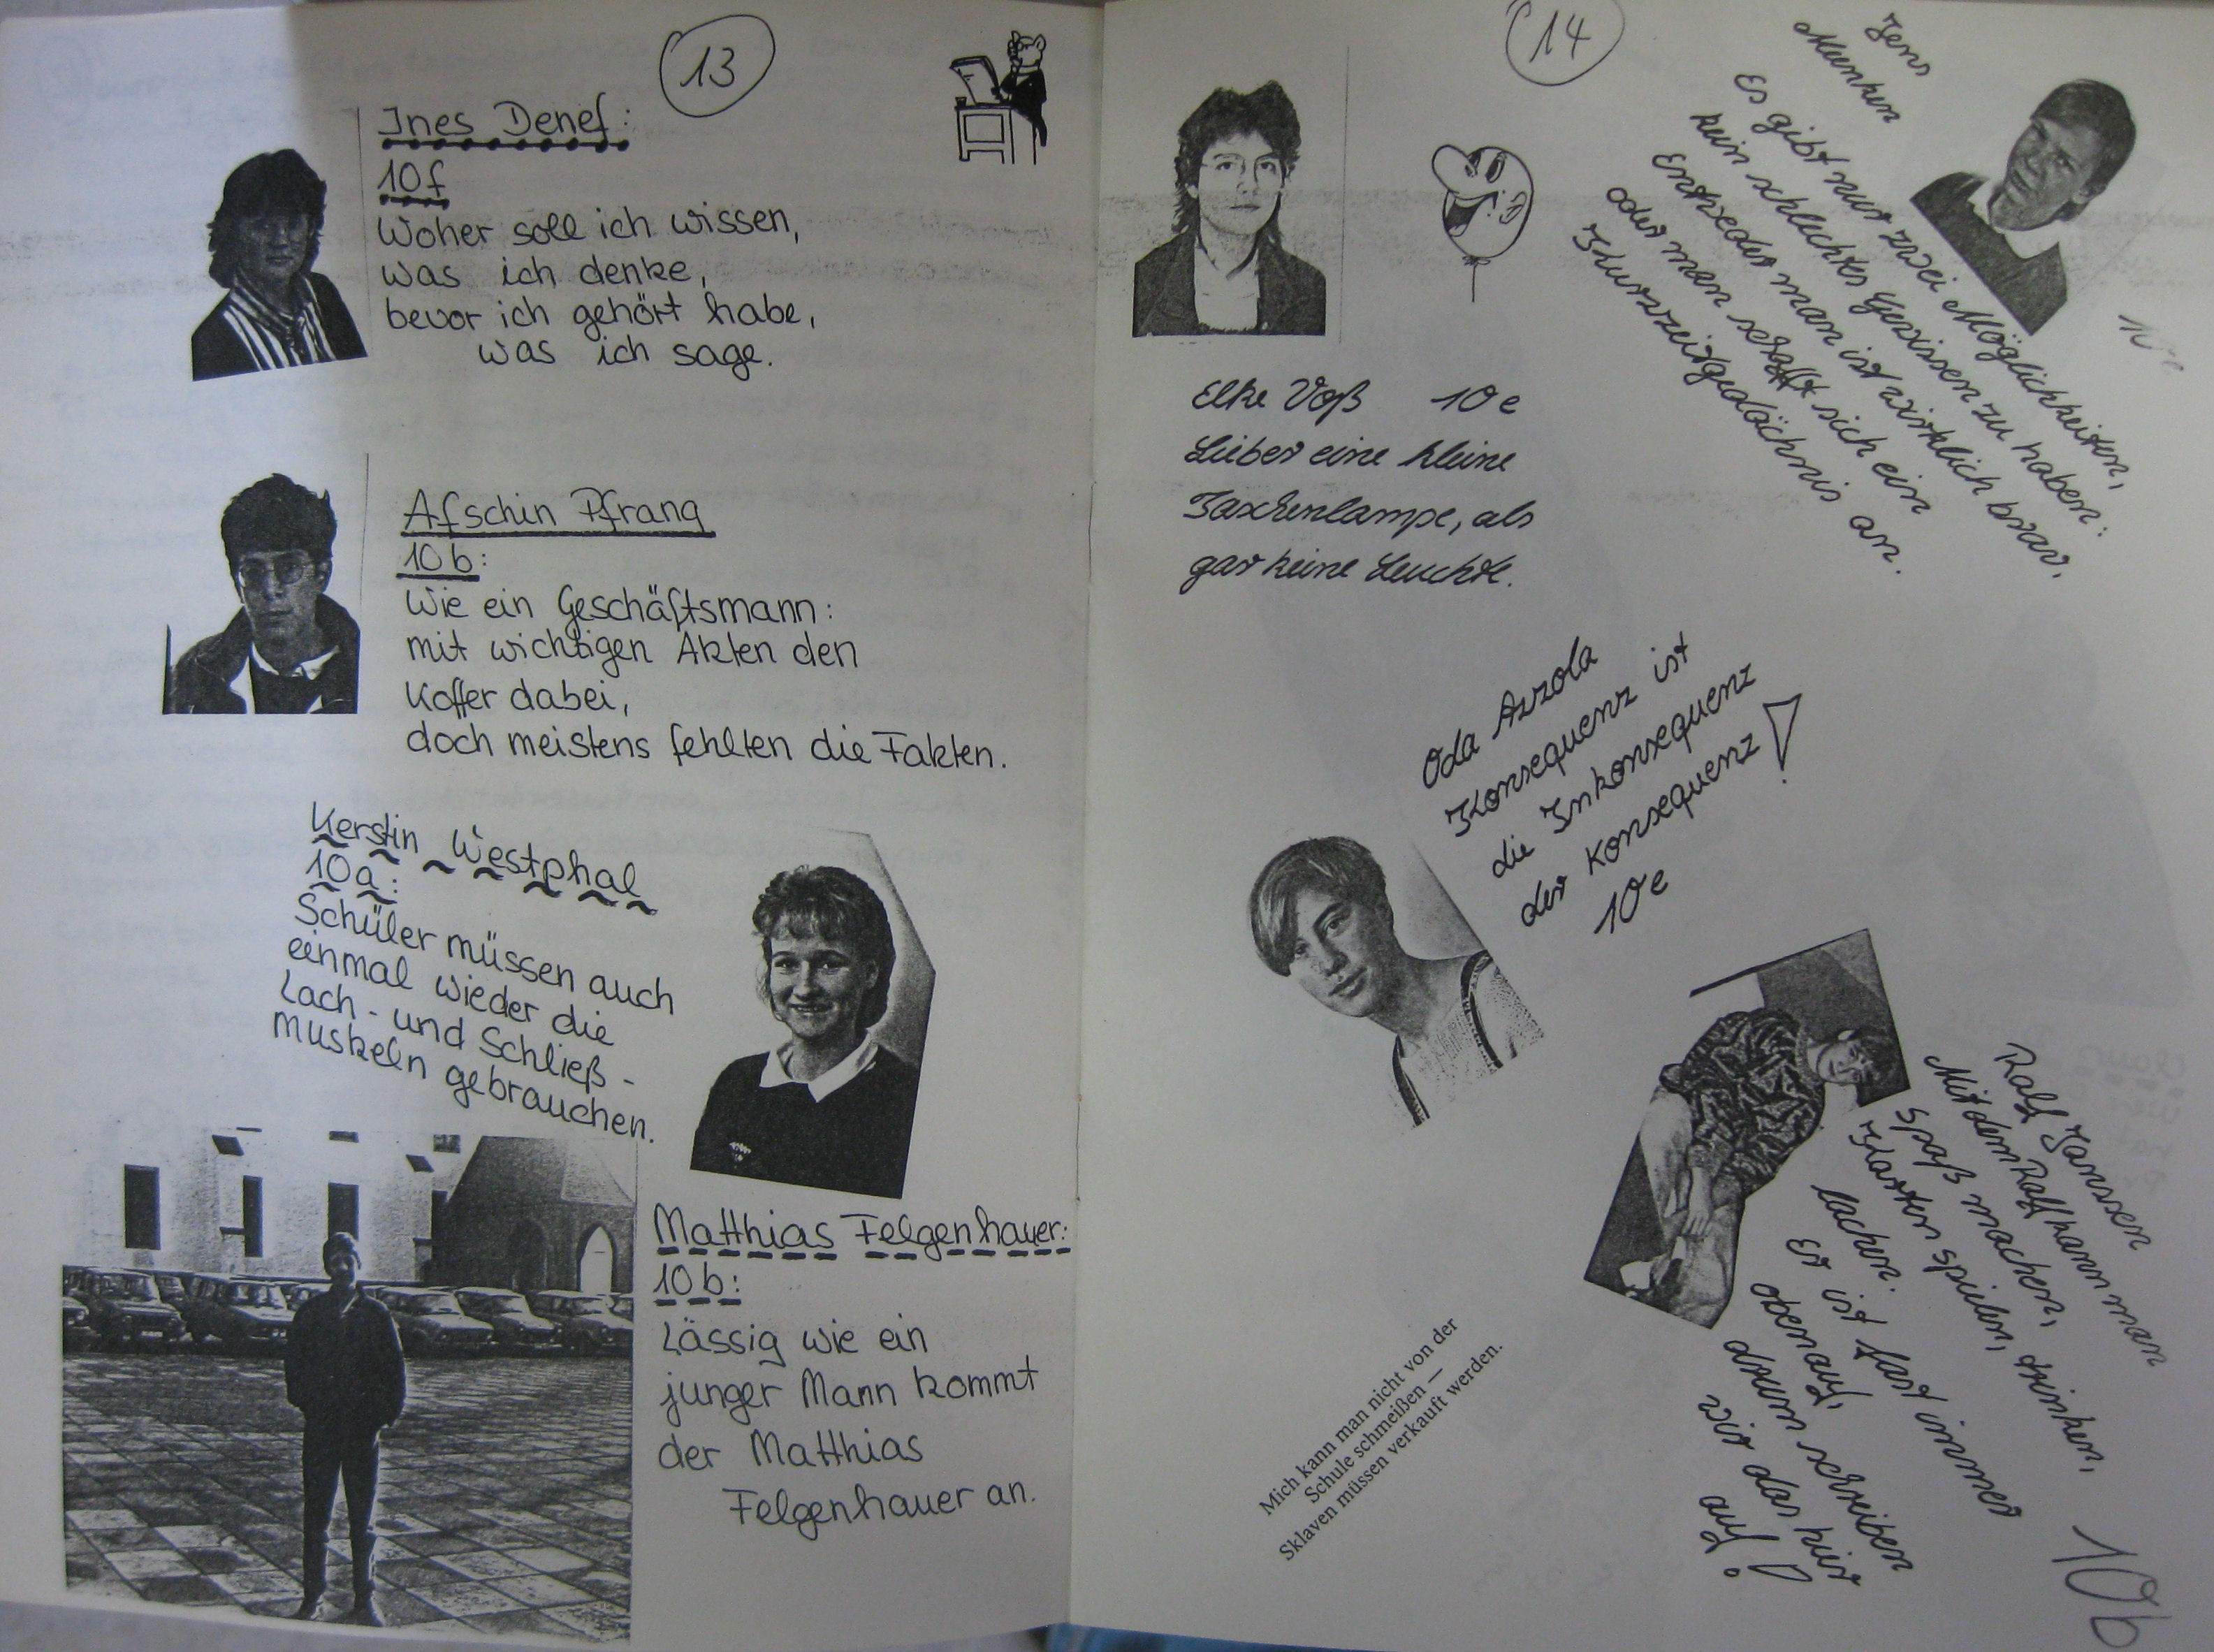 13
Ines Denef:
10f
Woher soll ich wissen,
was ich denke,
bevor ich gehört habe,
was ich sage.
Afschin Pfrang
10b:
Wie ein Geschäftsmann:
mit wichtigen Akten den
Koffer dabei,
doch meistens fehlten die Fakten.
Kerstin Westphal
10a:
Schüler müssen auch
einmal wieder die
Lach- und Schließ-
muskeln gebrauchen.
Matthias Felgenhauer:
10b:
Lässig wie ein
junger Mann kommt
der Matthias
Felgenhauer an.
14
Elke Voß 10e
Lieber eine kleine
Taschenlampe, als
gar keine Leuchte.
Jens
Munken
Es gibt nur zwei Möglichkeiten,
kein schlechtes Gewissen zu haben:
Entweder man ist wirklich brav.
oder man schafft sich ein
Kurzzeitgedächnis an.
10e
Oda Azzola
Konsequenz ist
die Inkonsequenz
der Konsequenz!
10e
Ralf Janssen
Mit dem Ralf kann man
Spaß machen,
Karten spielen, trinken,
lachen.
Er ist fast immer
obenauf,
drum schreiben
wir das hier
auf!
10b
Mich kann man nicht von der
Schule schmeißen —
Sklaven müssen verkauft werden.